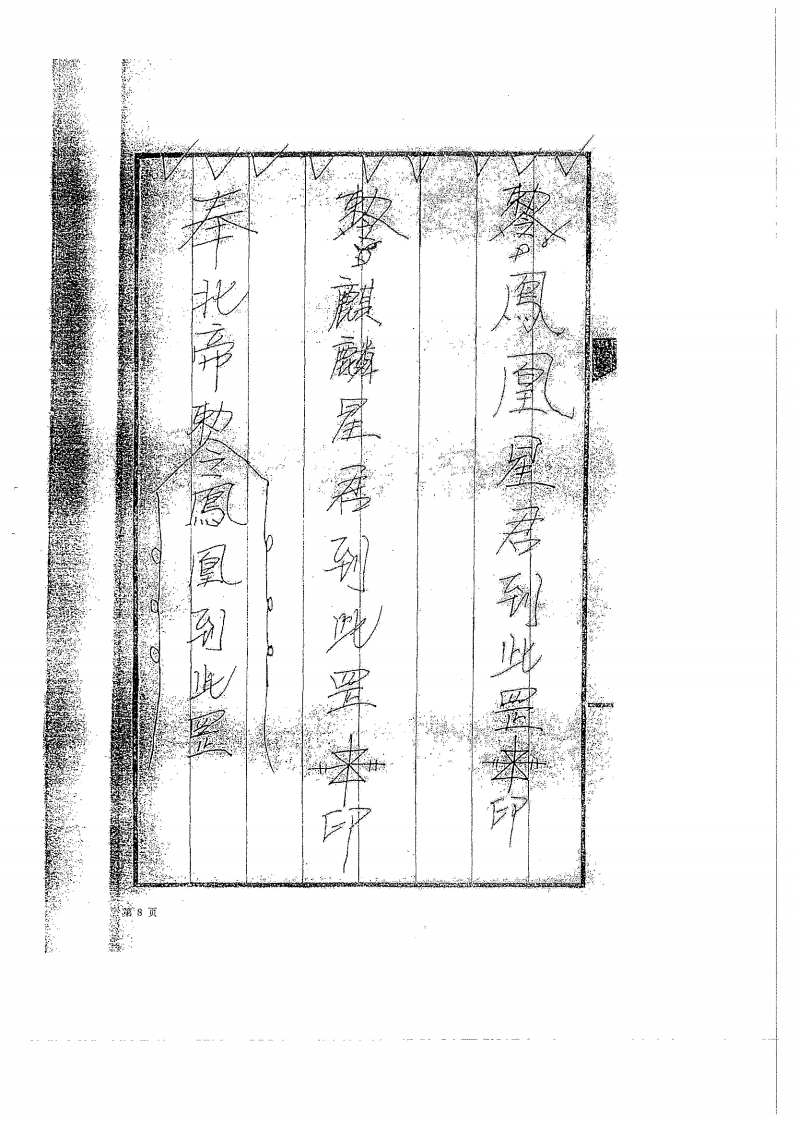 敕令鳳凰星君到此罡印
敕令麒麟星君到此罡印
奉北帝敕令鳳凰到此罡
第 8 页